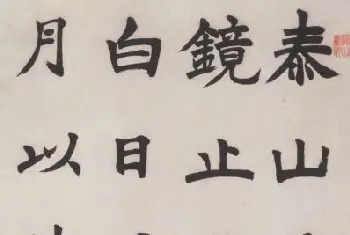 泰山
鏡止
白日
月以